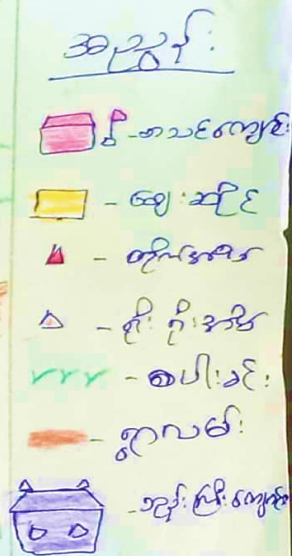 အညွှန်း
- စာသင်ကျောင်း
- ဈေးဆိုင်
- တိုက်အိမ်
- ရိုးရိုးအိမ်
- စပါးခင်း
- ရွာလမ်း
- ဘုန်းကြီးကျောင်း